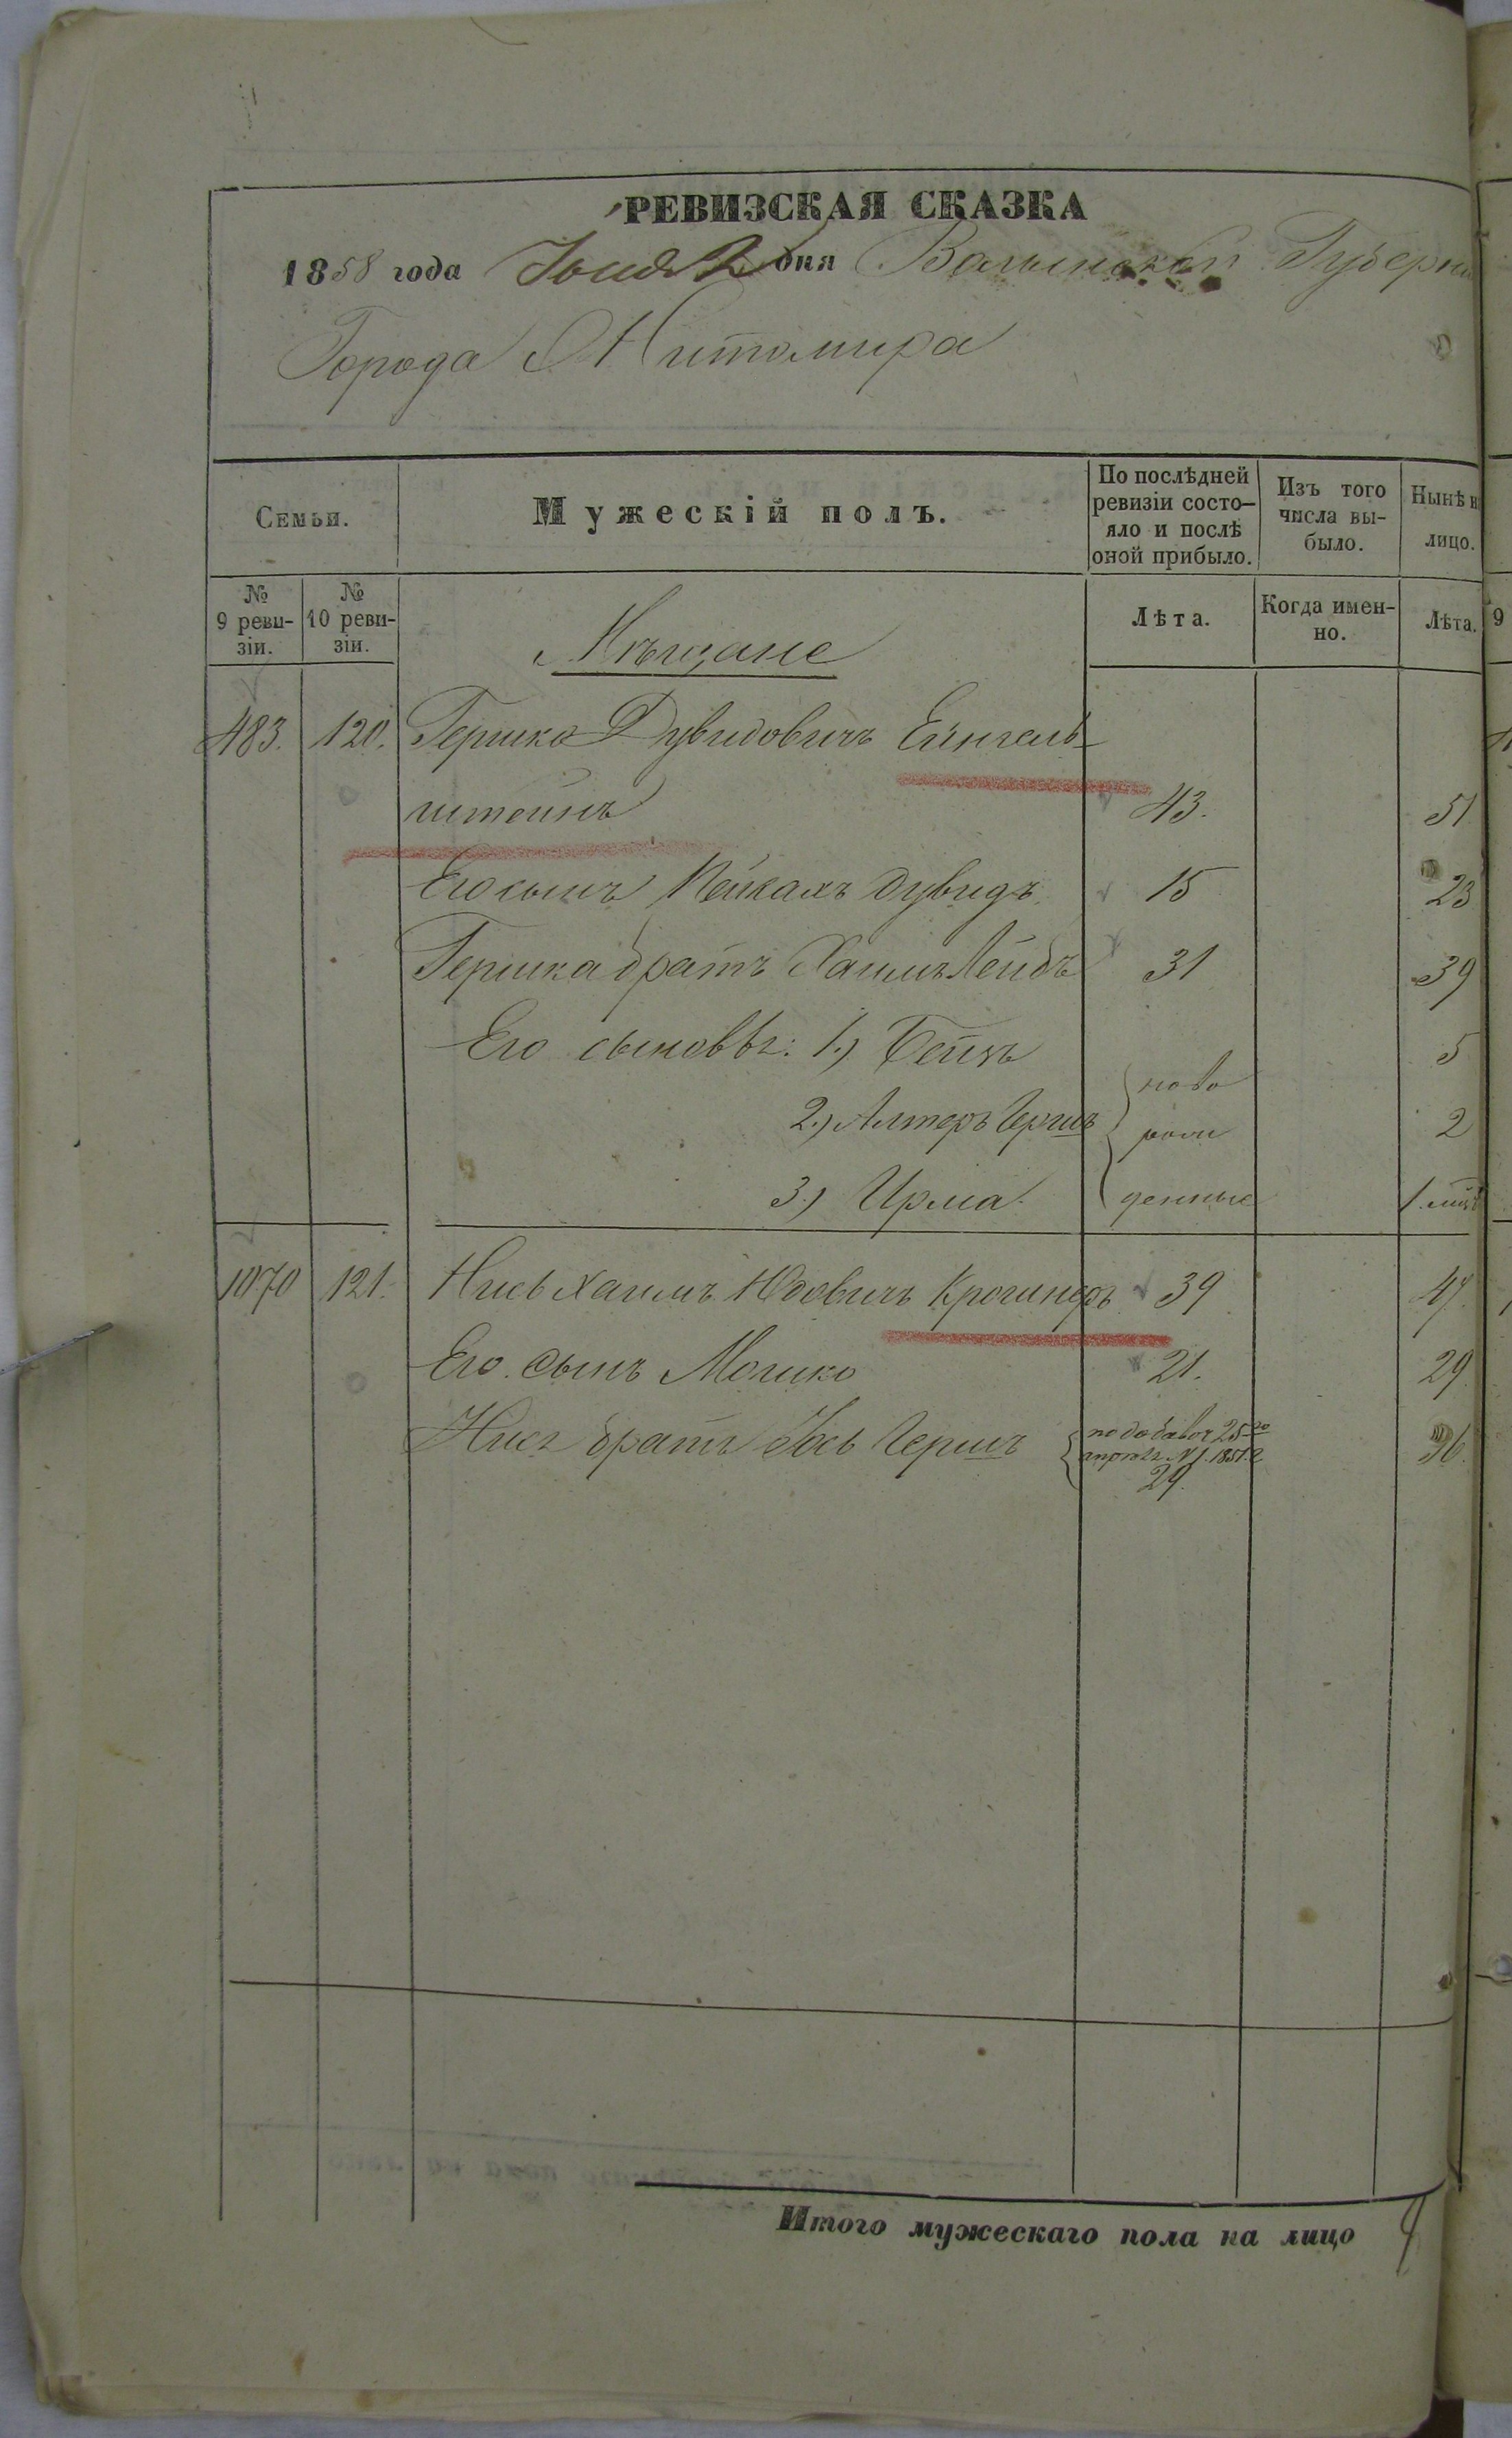 РЕВИЗСКАЯ СКАЗКА
1858 года Іюня 2 дня Волынской Губерніи
Города Житомира
Семьи.
Мужескій полъ.
По послѣдней ревизіи состо-
яло и послѣ оной прибыло.
Изъ того числа вы-
было.
Нынѣ на лицо.
№ 9 реви-
зіи.
№ 10 реви-
зіи.
Лѣта.
Когда имен-
но.
Лѣта.
Мѣщане
483. 120. Гершко Дувидовичъ Еингель-
штейнъ 43. 51
Его сынъ Дувидъ 15 23
Гершка братъ Хаимъ Лейбъ 31 39
Его сыновья: 1.) 5
2.) Алтеръ Гершъ 2
ново
рож
денные
3.) Ирма 1 мѣс.
1070 121. Нись Хаимъ Юдовичъ 39 47.
Его сынъ Мошко 21. 29.
Нися братъ Іось Гершъ 36.
по добавоч 25го
апрѣля № 1. 1851 г
29.
Итого мужескаго пола на лицо 9